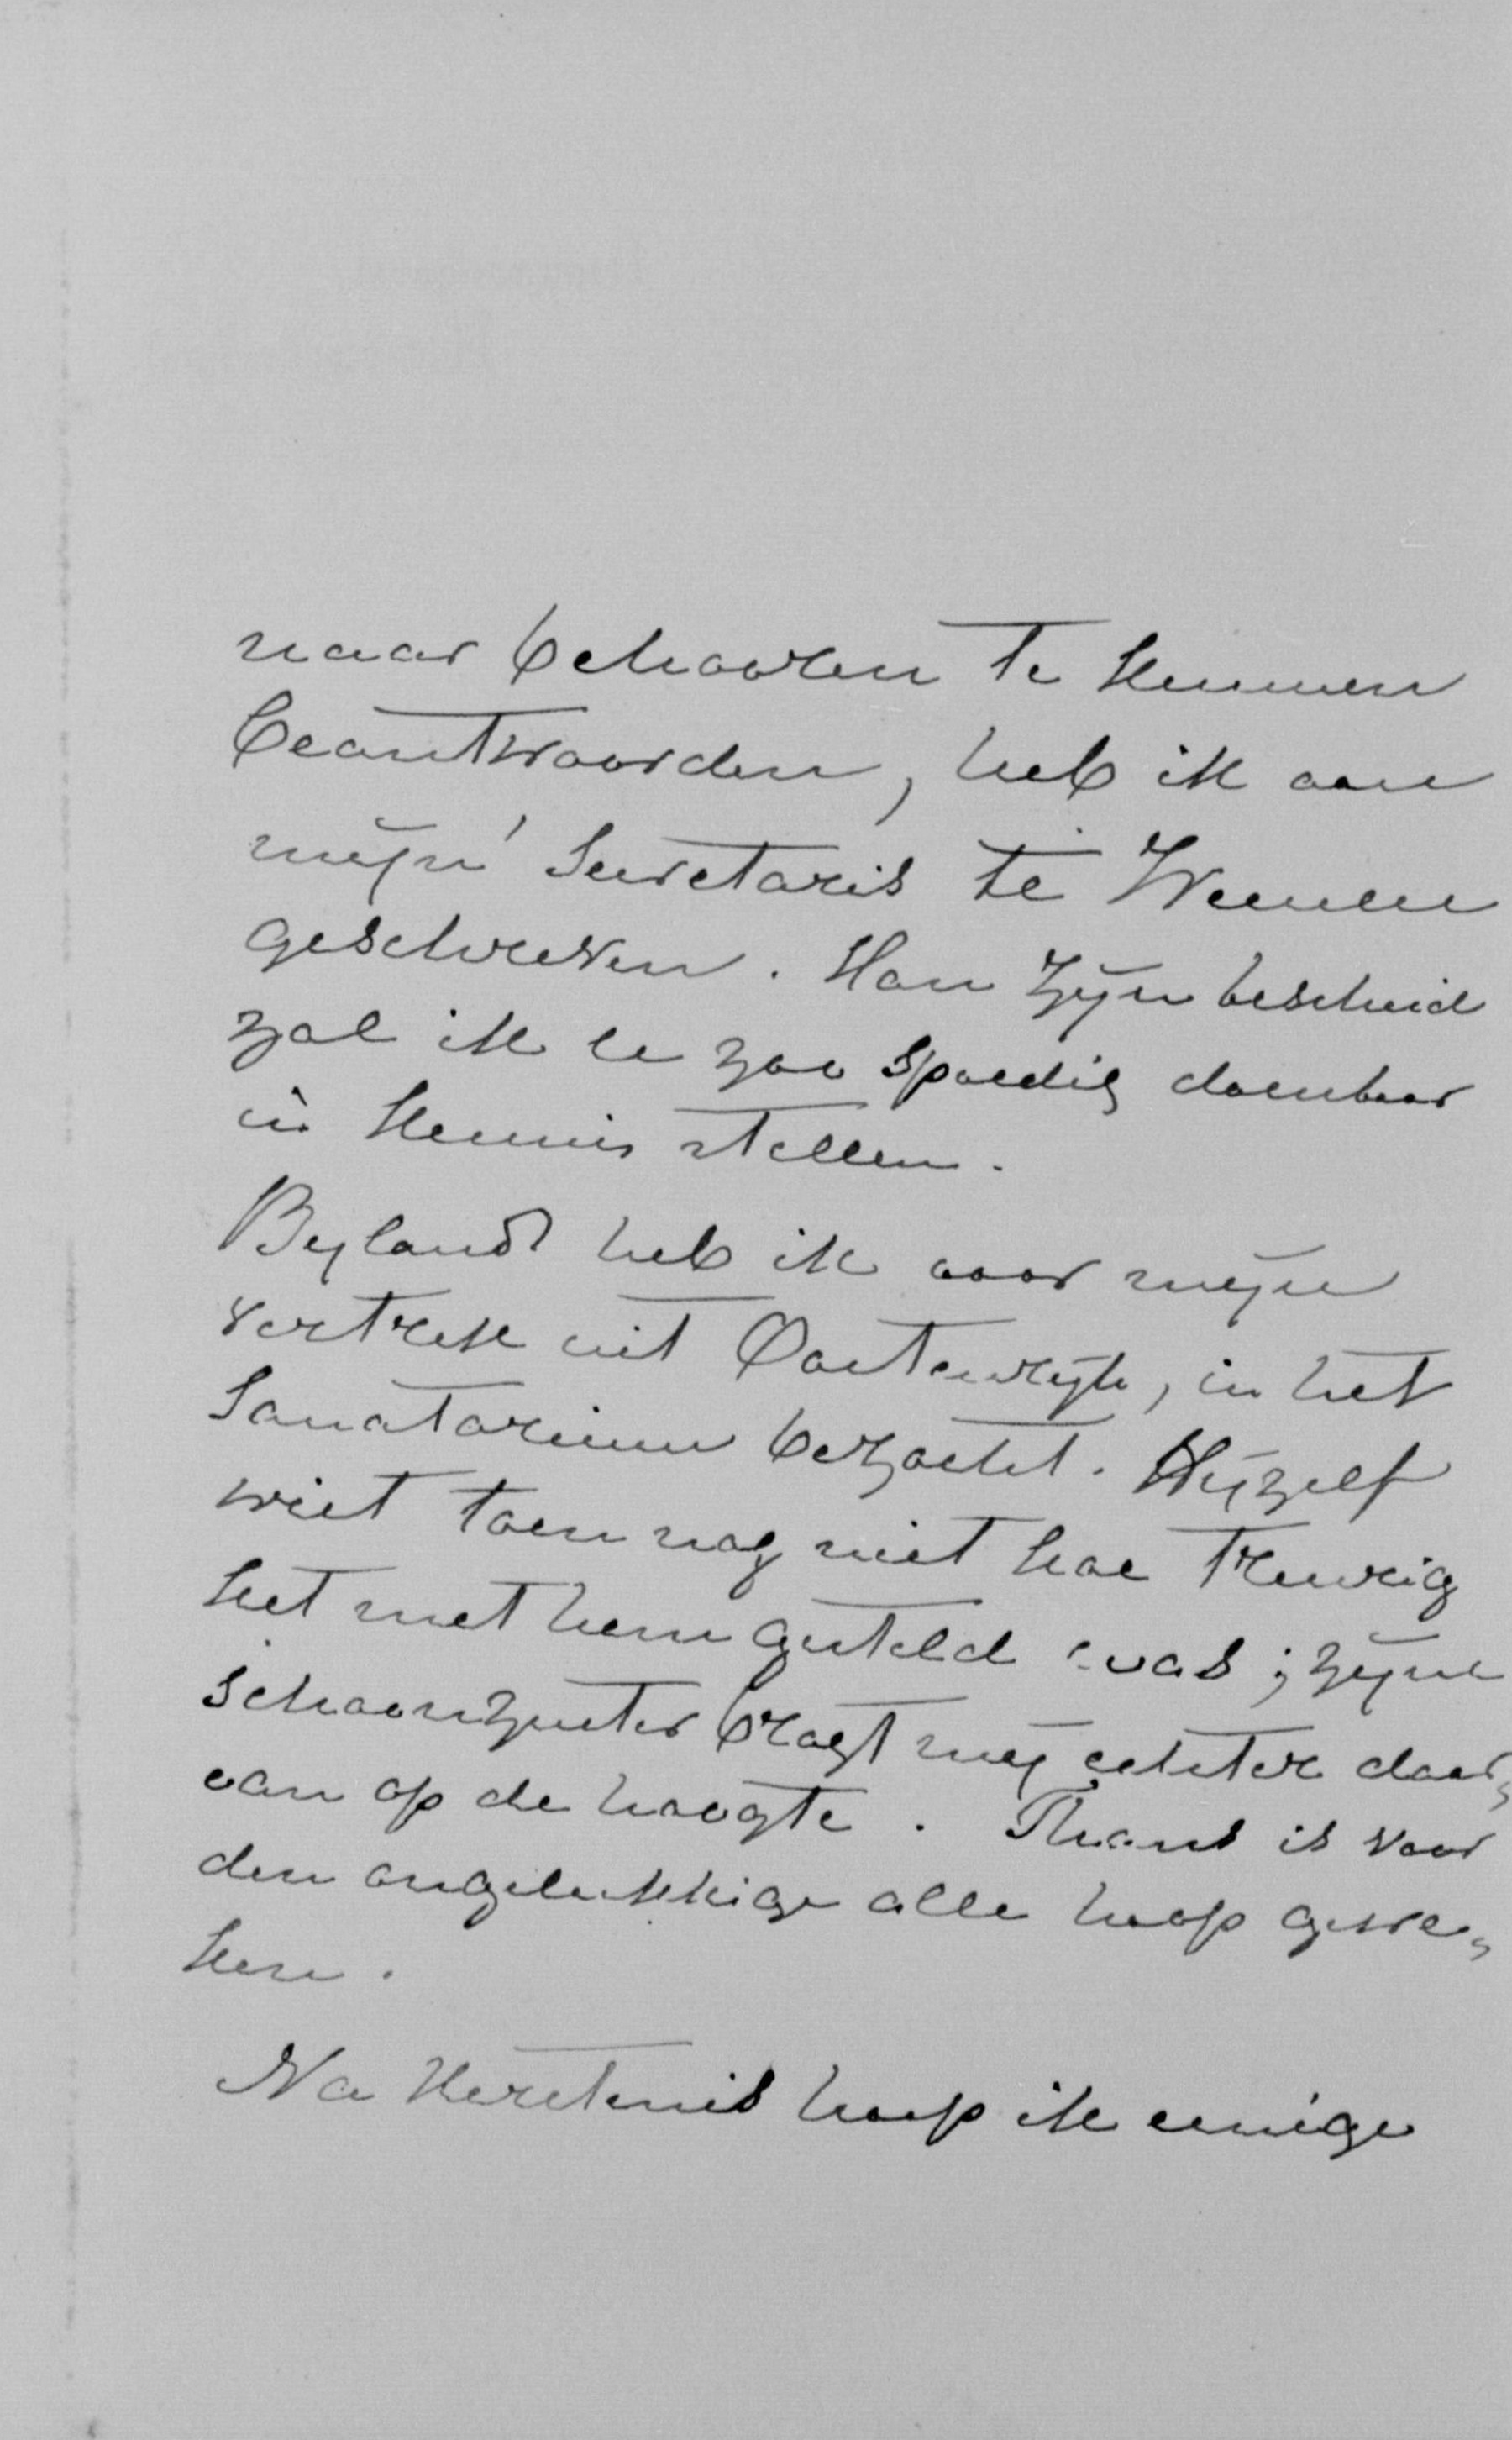 naar behooren te kunnen
beantwoorden, heb ik aan
mijn' Secretaris te Weenen
geschreven. Van zijn bescheid
zal ik U zoo spoedig doenbaar
in kennis stellen.
Bylandt heb ik voor mijn
vertrek uit Oostenrijk, in het
Sanatorium bezocht. Hijzelf
wist toen nog niet hoe treurig
het met hem gesteld was; zijne
schoonzuster bragt mij echter daar„
van op de hoogte. Thans is voor
den ongelukkige alle hoop gewe„
ken.
Na Kerstmis hoop ik eenige